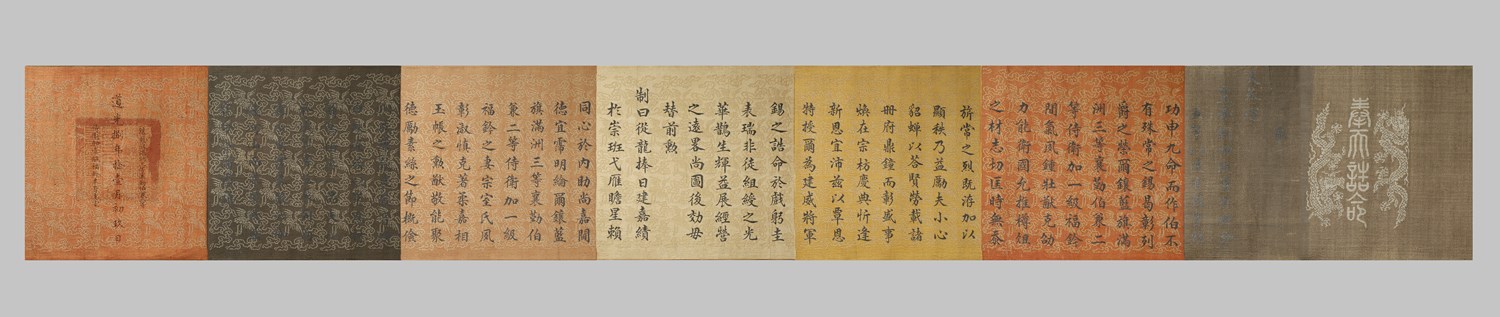 奉天誥命
功申九命而作伯不
有殊常之錫昴彰列
爵之榮爾鑲藍旗滿
洲三等襄勤伯兼二
等侍衛加一級福鈴
間氣風鍾壯猷克劭
力能衛國允推樽俎
之材志切匡時無忝
旂常之烈既洊加以
顯秩乃益勵夫小心
貂蟬以荅賢勞載諸
冊府鼎鐘而彰盛事
煥在宗枋慶典忻逢
新恩宜沛茲以覃恩
特授爾為建威將軍
錫之誥命於戲躬圭
表瑞非徒組綬之光
華鸛生輝益展經營
之遠畧尚圖後効毋
替前勲
制曰從龍捧日建嘉績
於崇班弋雁瞻星賴
同心於內助尚嘉閫
德宜霈明綸爾鑲藍
旗滿洲三等襄勤伯
兼二等侍衛加一級
福鈴之妻宗室氏風
彰淑慎克著柔嘉相
玉帳之勲猷敬能聚
德勵素絲之佛桃儉
道光拾年拾壹月初玖日